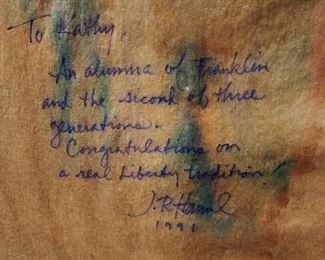 To Kathy,
An alumna of Franklin
and the second of three
generations.
Congratulations on
a real Liberty tradition!
J.R. Hamil
1991